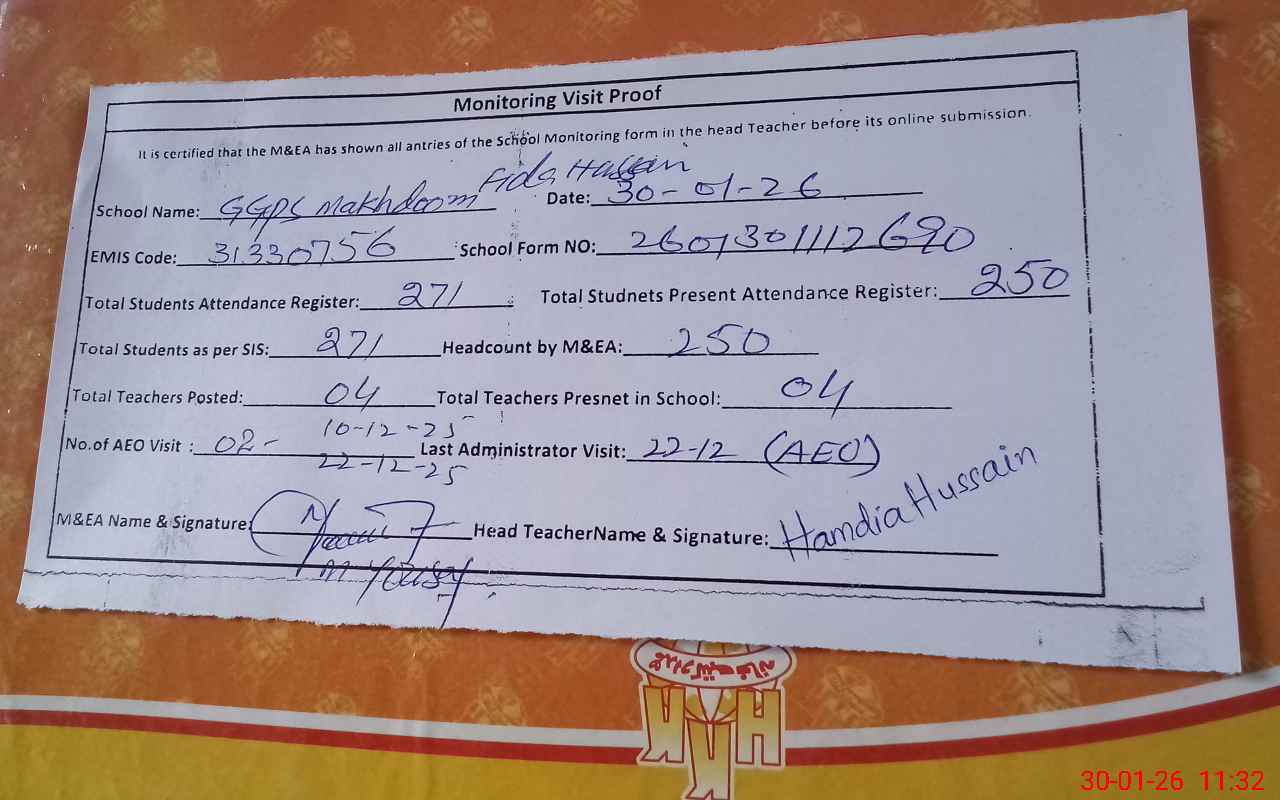 Monitoring Visit Proof
It is certified that the M&EA has shown all antries of the School Monitoring form in the head Teacher before its online submission.
School Name: GGPS Makhdoom Fida Hassan Date: 30-01-26
EMIS Code: 31330756 School Form NO: 2601301112690
Total Students Attendance Register: 271 Total Studnets Present Attendance Register: 250
Total Students as per SIS: 271 Headcount by M&EA: 250
Total Teachers Posted: 04 Total Teachers Presnet in School: 04
No.of AEO Visit : 02- 10-12-25 22-12-25 Last Administrator Visit: 22-12 (AEO)
M&EA Name & Signature: M Yousaf Head TeacherName & Signature: Hamdia Hussain
30-01-26 11:32